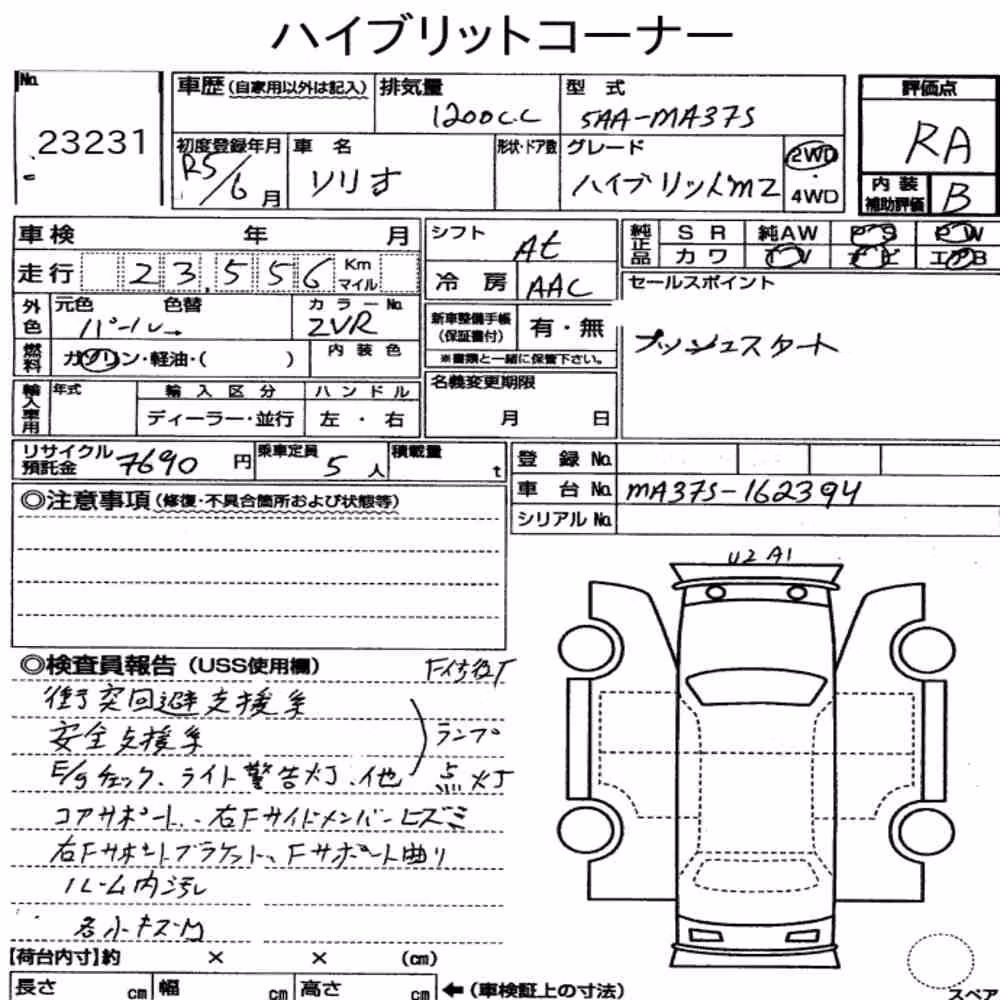 ハイブリットコーナー
No. 23231
車歴(自家用以外は記入) 排気量 1200c.c 型式 5AA-MA37S
初度登録年月 R5/6月 車名 ソリオ 形状・ドア数 グレード ハイブリットMZ 2WD・4WD
評価点 RA
内装補助評価 B
車検 年 月
走行 23,556 Km マイル
外色 元色 パール 色替 カラーNo. ZVR
燃料 ガソリン・軽油・( ) 内装色
輸入車用 年式 輸入区分 ディーラー・並行 ハンドル 左・右
シフト At
冷房 AAC
新車整備手帳(保証書付) 有・無
※書類と一緒に保管下さい。
名義変更期限 月 日
純正品 SR 純AW PS PW
カワ TV ナビ エアB
セールスポイント
プッシュスタート
リサイクル預託金 7690円 乗車定員 5人 積載量 t
登録No.
車台No. MA37S-162394
シリアルNo.
◎注意事項(修復・不具合箇所および状態等)
U2 A1
◎検査員報告(USS使用欄) F修復T
衝突回避支援系
安全支援系 ランプ
E/gチェック、ライト警告灯、他 点灯
コアサポート、右Fサイドメンバーヒズミ
右Fサポートブラケット、Fサポート曲り
ルーム内汚レ
各小キズ・凹
【荷台内寸】約 × × (cm)
長さ cm 幅 cm 高さ cm ←(車検証上の寸法)
スペア